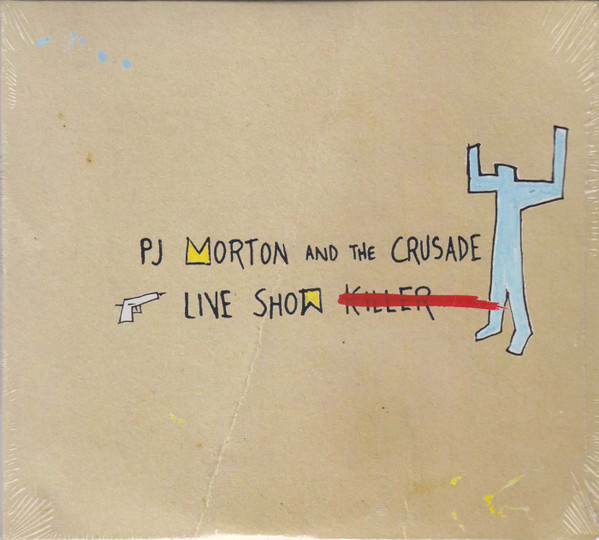 PJ MORTON AND THE CRUSADE
LIVE SHOW KILLER